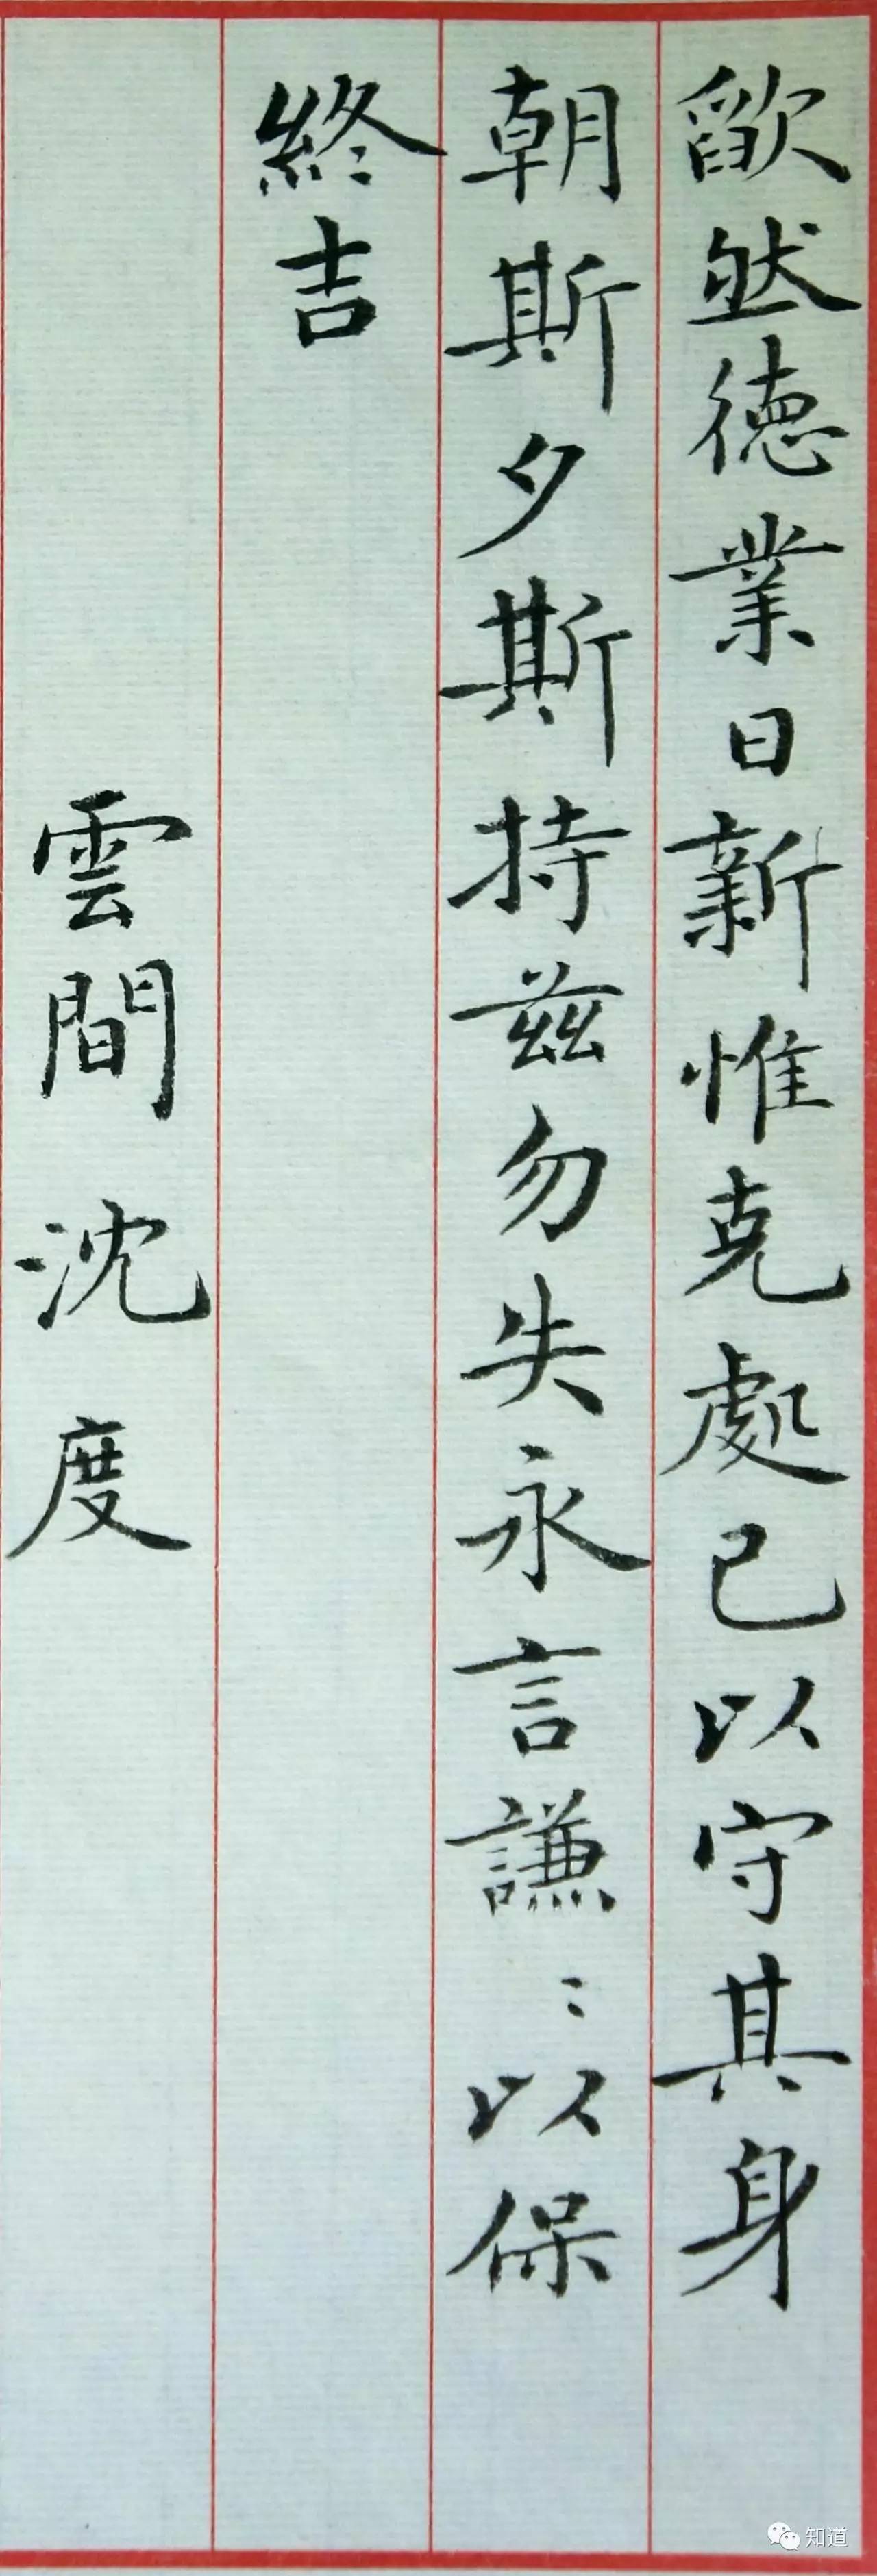 欿然徳業日新惟克處已以守其身
朝斯夕斯持茲勿失永言謙〻以保
終吉
雲間沈度
知道